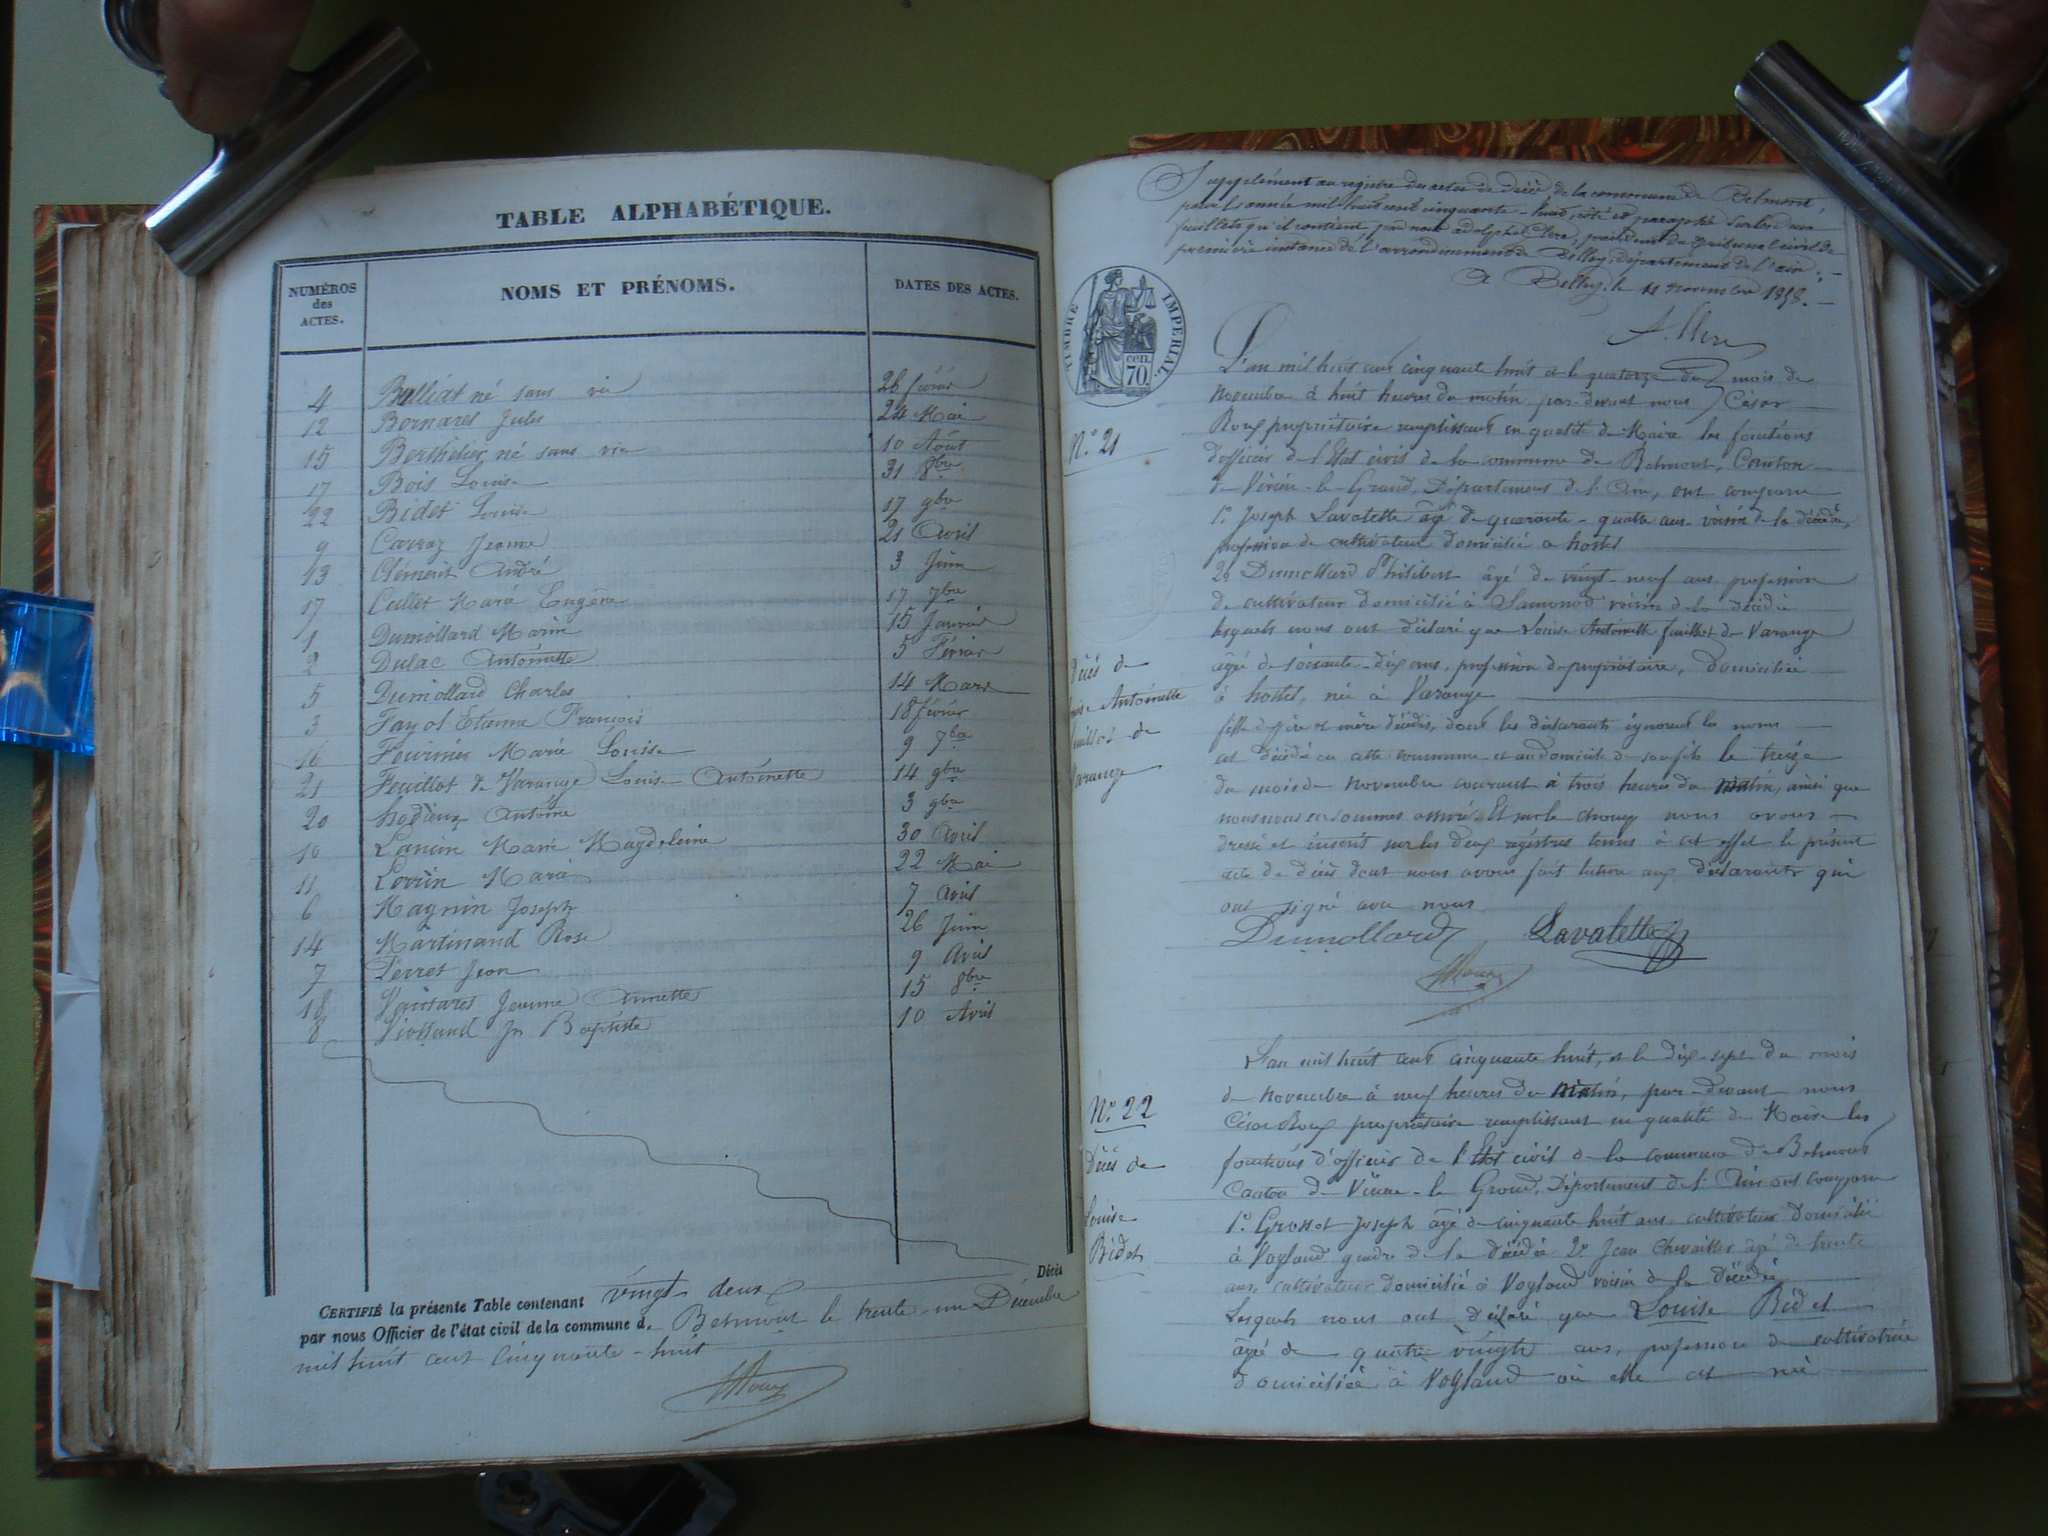 TABLE ALPHABÉTIQUE.
NUMÉROS des ACTES.
NOMS ET PRÉNOMS.
DATES DES ACTES.
4 Balliat né sans vie 26 février
12 Bornarel Jules 24 Mai
15 Berthelier né sans vie 10 Août
17 Bois Louise 31 8bre
22 Bidet Louise 17 9bre
9 Carraz Jeanne 21 Avril
13 Clément André 3 Juin
17 Cullet Marie Eugénie 17 7bre
1 Dumollard Marie 15 Janvier
2 Dulac Antoinette 5 Février
5 Dumollard Charles 14 Mars
3 Fayol Etienne François 18 février
16 Fournier Marie Louise 9 7bre
21 Feuillot de Varange Louise Antoinette 14 9bre
20 hodieux Antoine 3 9bre
10 Lancin Marie Magdeleine 30 Avril
11 Lovrin Marie 22 Mai
6 Magnin Joseph 7 Avril
14 Martinand Rose 26 Juin
7 Perret Jean 9 Avril
18 Jeanne Annette 15 8bre
8 Violland Jn Baptiste 10 Avril
CERTIFIÉ la présente Table contenant vingt deux Décès
par nous Officier de l'état civil de la commune de Belmont le trente-un Décembre
mil huit cent cinquante-huit
Roux
Supplément au registre des actes de décès de la commune de Belmont,
pour l'année mil huit cent cinquante-huit, coté et paraphé sur les deux
feuillets qu'il contient par nous adolphe Clerc, président du tribunal civil de
première instance de l'arrondissement de Belley, département de l'ain.
A Belley, le 11 novembre 1858.
A. Clerc
TIMBRE IMPERIAL.
cen.
70.
L'an mil huit cent cinquante huit et le quatorze du mois de
Novembre à huit heures du matin par-devant nous César
Roux propriétaire remplissant en qualité de Maire les fonctions
N° 21
d'officier de l'Etat civil de la commune de Belmont, Canton
de Virieu-le-Grand, Département de l'Ain, ont comparu
1° Joseph Lavalette âgé de quarante-quatre ans voisin de la décédée,
profession de cultivateur domicilié à hostel
2° Dumollard Philibert âgé de vingt-neuf ans profession
de cultivateur domicilié à Samonod voisin de la décédée
lesquels nous ont déclaré que Louise Antoinette feuillot de Varange
âgée de soixante-dix ans, profession de propriétaire, domiciliée
à hostel, née à Varange
décès de
Louise Antoinette
feuillot de
Varange
fille de père et mère décédés, dont les déclarants ignorent les noms
est décédée en cette commune et au domicile de son fils le treize
du mois de Novembre courant à trois heures du matin, ainsi que
nous nous en sommes assurés. Et sur le champ nous avons
dressé et inscrit sur les deux registres tenus à cet effet le présent
acte de décès dont nous avons fait lecture aux déclarants qui
ont signé avec nous
Dumollard Lavalette
Roux
L'an mil huit cent cinquante huit, et le dix-sept du mois
de Novembre à neuf heures du matin, par-devant nous
N° 22
César Roux propriétaire remplissant en qualité de Maire les
fonctions d'officier de l'Etat civil de la commune de Belmont
Canton de Virieu-le-Grand, Département de l'Ain ont comparu
décès de
Louise
Bidet
1° Grosset Joseph âgé de cinquante huit ans cultivateur domicilié
à Vogland gendre de la décédée 2° Jean Chevallier âgé de trente
ans, cultivateur domicilié à Vogland voisin de la décédée
Lesquels nous ont déclaré que Louise Bidet
âgée de quatre-vingts ans, profession de cultivatrice
domiciliée à Vogland où elle est née